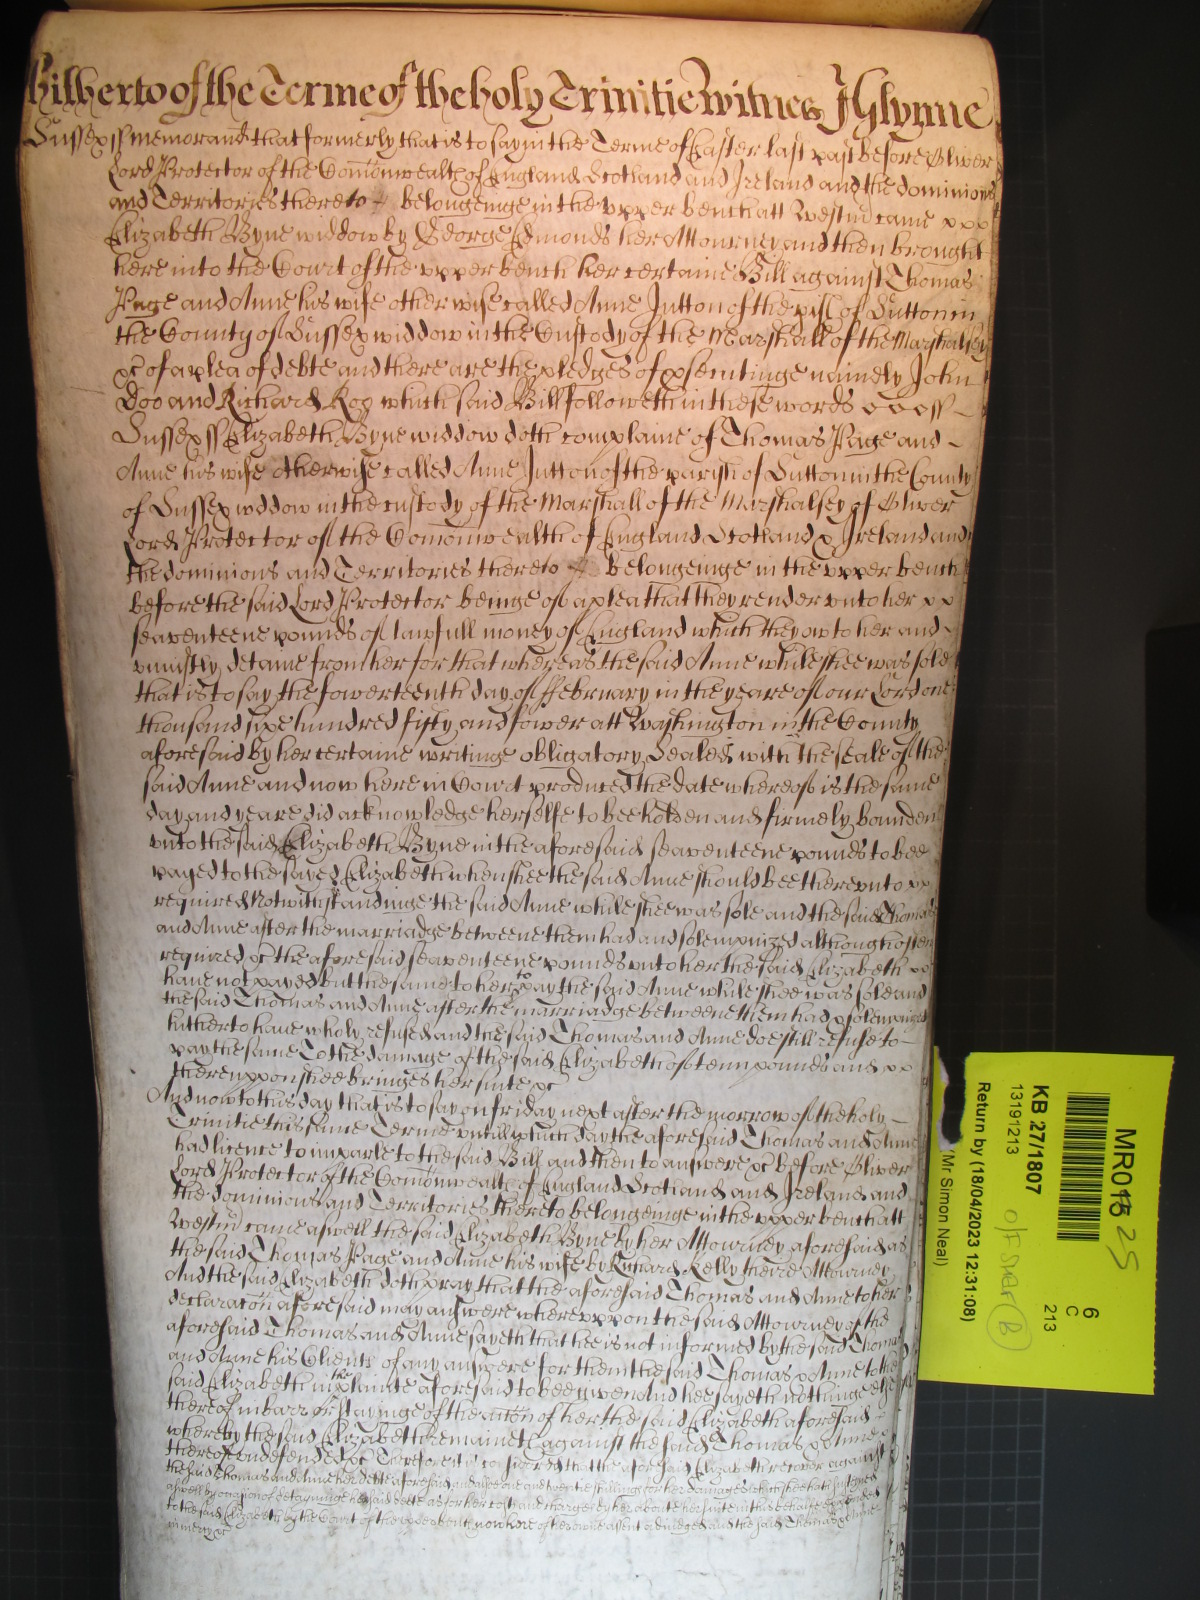 hitherto of the Terme of the holy Trinitie Witnes J Glynne
Sussex ss Memorand that formerly that is to say in the Terme of Easter last past before Oliver
Lord Protector of the Comonwealth of England Scotland and Ireland and the dominions
and Territories thereto belongeinge in the upper bench att Westm came
Elizabeth Byne widdow by George Edmonds her Attourney and then brought
here into the Court of the upper bench her certaine Bill against Thomas
Page and Anne his wife otherwise called Anne Jutton of the pish of Sutton in
the County of Sussex widdow in the Custody of the Marshall of the Marshalsey
&c of a plea of debte and there are the pledges of psecutinge namely John
Doo and Richard Roo which said Bill followeth in these words ss
Sussex ss Elizabeth Byne widdow doth complaine of Thomas Page and
Anne his wife otherwise called Anne Jutton of the parish of Sutton in the County
of Sussex widdow in the custody of the Marshall of the Marshalsey of Oliver
Lord Protector of the Comonwealth of England Scotland & Ireland and
the dominions and Territories thereto belongeinge in the upper bench
before the said Lord Protector beinge of a plea that they render unto her
seaventeene pounds of lawfull money of England which they ow to her and
uniustly detaine from her for that whereas the said Anne while shee was sole
that is to say the fowerteenth day of February in the yeare of our Lord one
thousand sixe hundred fifty and fower att Washington in the County
aforesaid by her certaine writinge obligatory Sealed with the seale of the
said Anne and now here in Court produced the date whereof is the same
day and yeare did acknowledge herselfe to bee holden and firmely bounden
unto the said Elizabeth Byne in the aforesaid seaventeene pounds to bee
payed to the sayed Elizabeth when shee the said Anne should bee thereunto
required Notwithstandinge the said Anne while shee was sole and the said Thomas
and Anne after the marriadge betweene them had and solempnized although often
required &c the aforesaid seaventeene pounds unto her the said Elizabeth
have not payed but the same to her to pay the said Anne while shee was sole and
the said Thomas and Anne after the marriadge betweene them had & solempnized
hitherto have wholy refused and the said Thomas and Anne doe still refuse to
pay the same To the damage of the said Elizabeth of tenn pounds and
thereuppon shee bringes her suite &c
And now to this day that is to say on friday next after the morrow of the holy
Trinitie this same Terme untill which day the aforesaid Thomas and Anne
had licence to imparle to the said Bill and then to answere &c before Oliver
Lord Protector of the Comonwealth of England Scotland and Ireland and
the dominions and Territories thereto belongeinge in the upper bench att
Westm came aswell the said Elizabeth Byne by her Attourney aforesaid as
the said Thomas Page and Anne his wife by Richard Kelly theire Attourney
And the said Elizabeth doth pray that the aforesaid Thomas and Anne to her
declaracon aforesaid may answere whereuppon the said Attourney of the
aforesaid Thomas and Anne sayeth that hee is not informed by the said Thomas
and Anne his Clients of any answere for them the said Thomas & Anne to the
said Elizabeth in the plainte aforesaid to bee given And hee sayeth nothinge else
thereof in barr or stayinge of the accon of her the said Elizabeth aforesaid
whereby the said Elizabeth remaineth against the said Thomas & Anne
thereof undefended &c Therefore it is considered that the aforesaid Elizabeth recover against
the said Thomas and Anne her debte aforesaid and alsoe one and twentie shillings for her damages which shee hath susteyned
aswell by occasion of detayninge the said debte as for her costs and charges by her about her suite in this behalfe expended
to the said Elizabeth by the Court of the upper bench now here of her owne assent adiudged and the said Thomas & Anne
in mercy &c
MR018 25
6
C
213
KB 27/1807
13191213
O/F Shelf (B)
Return by (18/04/2023 12:31:08)
(Mr Simon Neal)